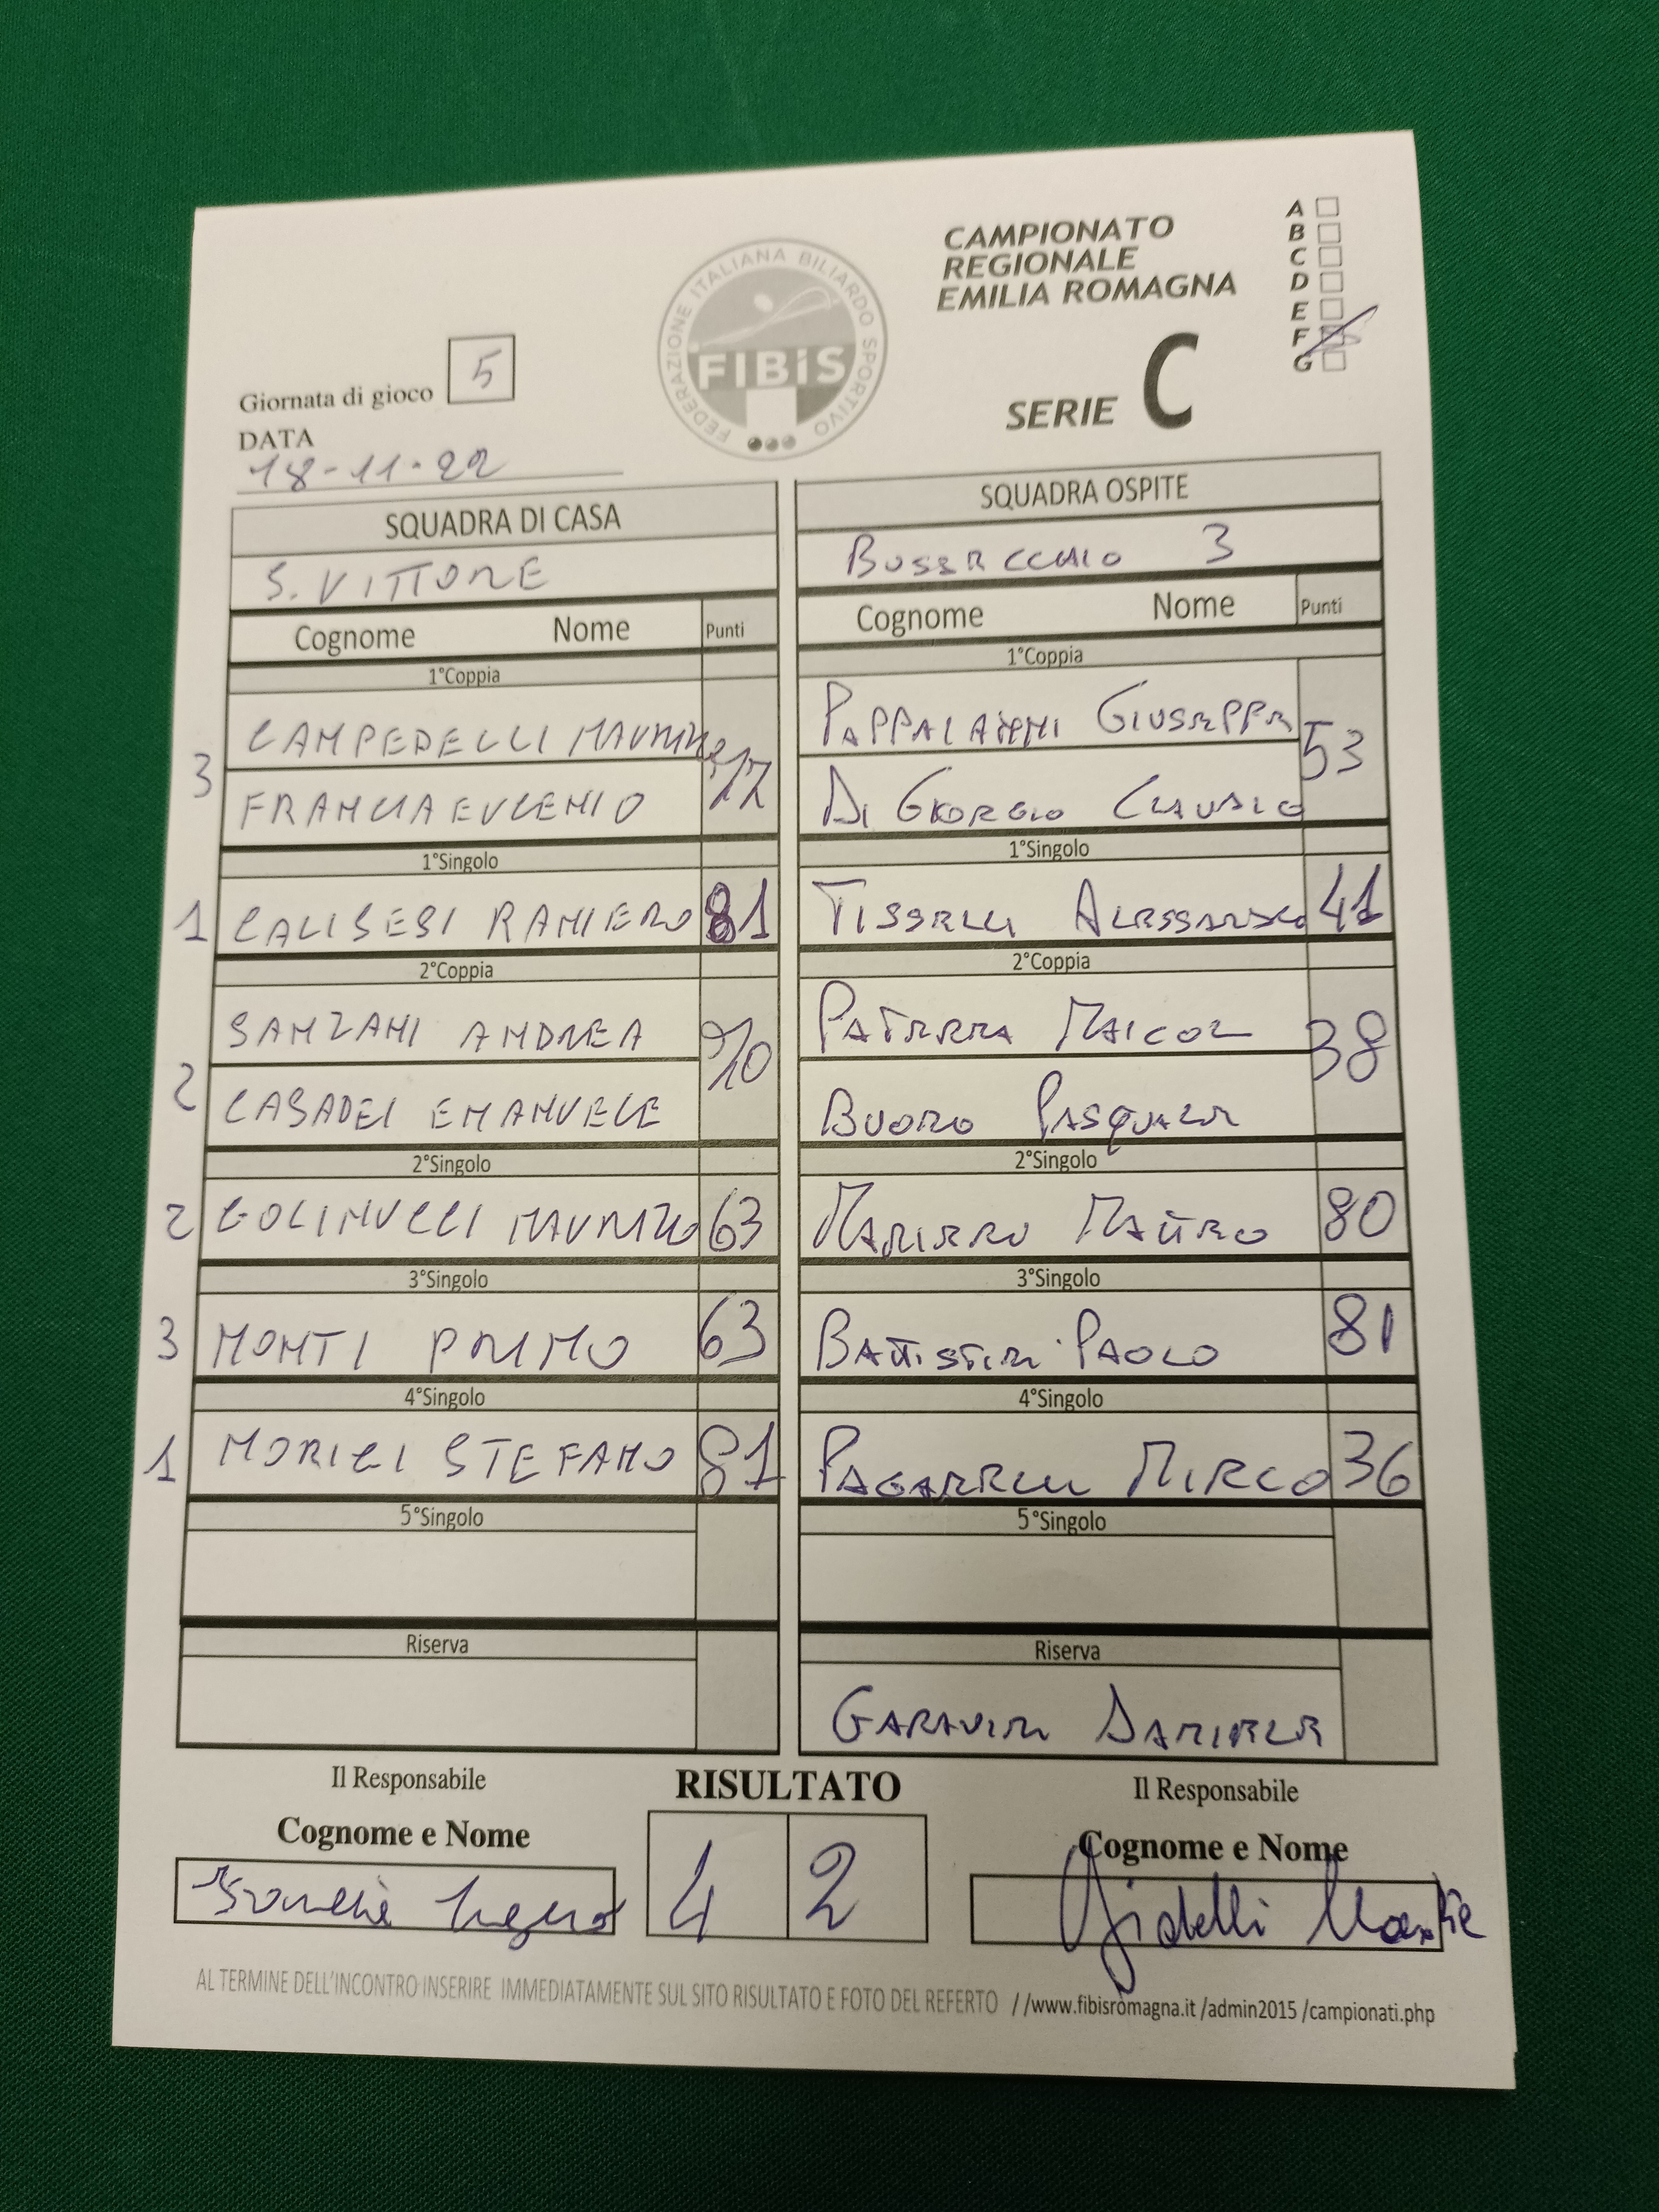 CAMPIONATO
REGIONALE
EMILIA ROMAGNA
SERIE C
A
B
C
D
E
F
G
FEDERAZIONE ITALIANA BILIARDO SPORTIVO
FIBiS
Giornata di gioco 5
DATA
18-11-22
SQUADRA DI CASA
S. VITTORE
Cognome Nome Punti
1°Coppia
3 CAMPEDELLI MAURIZIO
FRANCIA EUGENIO
1°Singolo
1 CALISESI RANIERO 81
2°Coppia
SANZANI ANDREA
2 CASADEI EMANUELE
2°Singolo
2 GOLINUCCI MAURIZIO 63
3°Singolo
3 MONTI PRIMO 63
4°Singolo
1 MORIGI STEFANO 81
5°Singolo
Riserva
SQUADRA OSPITE
BUSSECCHIO 3
Cognome Nome Punti
1°Coppia
GIUSEPPE 53
DI GIORGIO CLAUDIO
1°Singolo
TISSELLI ALESSANDRO 41
2°Coppia
MAICOL 38
BUORO PASQUALE
2°Singolo
MAURO 80
3°Singolo
BATTISTINI PAOLO 81
4°Singolo
MIRCO 36
5°Singolo
Riserva
GARAVINI DANIELE
Il Responsabile
Cognome e Nome
RISULTATO
4 2
Il Responsabile
Cognome e Nome
AL TERMINE DELL'INCONTRO INSERIRE IMMEDIATAMENTE SUL SITO RISULTATO E FOTO DEL REFERTO //www.fibisromagna.it /admin2015 /campionati.php